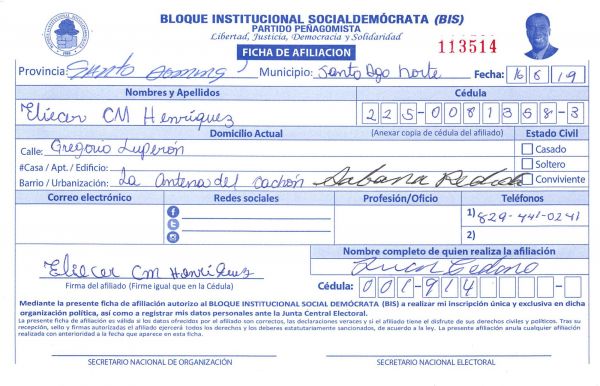 BLOQUE INSTITUCIONAL SOCIALDEMÓCRATA (BIS)
PARTIDO PEÑAGOMISTA
Libertad, Justicia, Democracia y Solidaridad
FICHA DE AFILIACION
113514
Provincia: Santo Domingo Municipio: Santo Dgo Norte Fecha: 16 8 19
Nombres y Apellidos Cédula
Eliecer CM Henríquez 225-0081358-3
Domicilio Actual (Anexar copia de cédula del afiliado) Estado Civil
Calle: Gregorio Luperón Casado
#Casa / Apt. / Edificio: Soltero
Barrio / Urbanización: La Antena del Cachón Sabana Perdida Conviviente
Correo electrónico Redes sociales Profesión/Oficio Teléfonos
1) 829-441-0241
2)
Nombre completo de quien realiza la afiliación
Eliecer CM Henríquez Juan Cedano
Firma del afiliado (Firme igual que en la Cédula) Cédula: 001-914
Mediante la presente ficha de afiliación autorizo al BLOQUE INSTITUCIONAL SOCIAL DEMÓCRATA (BIS) a realizar mi inscripción única y exclusiva en dicha
organización política, así como a registrar mis datos personales ante la Junta Central Electoral.
La presente ficha de afiliación es válida si los datos ofrecidos por el afiliado son correctos, las declaraciones veraces y si el afiliado tiene el disfrute de sus derechos civiles y políticos. Tras su
recepción, sello y firmas autorizadas el afiliado ejercerá todos los derechos y los deberes estatutariamente sancionados, de acuerdo a la ley. La presente afiliación anula cualquier afiliación
realizada con anterioridad a la fecha que aparece en esta ficha.
SECRETARIO NACIONAL DE ORGANIZACIÓN SECRETARIO NACIONAL ELECTORAL